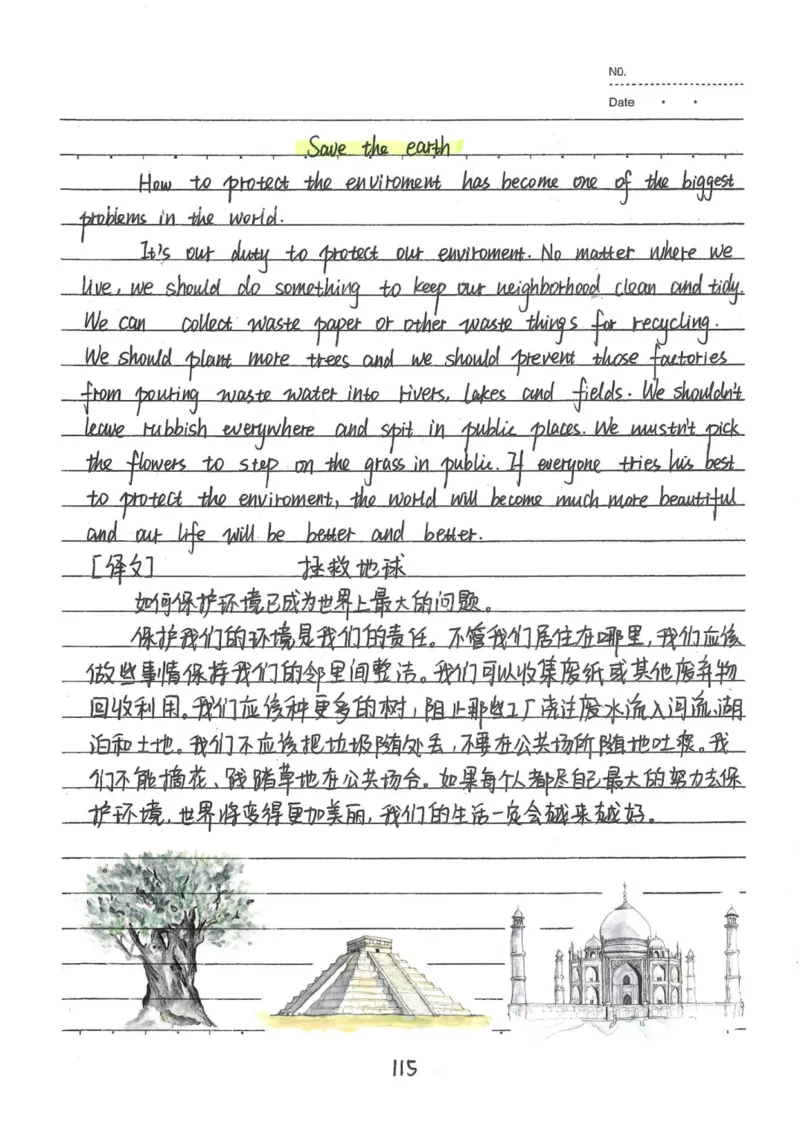 N0.
Date
Save the earth
How to protect the enviroment has become one of the biggest
problems in the world.
It's our duty to protect our enviroment. No matter where we
live, we should do something to keep our neighborhood clean and tidy.
We can collect waste paper or other waste things for recycling.
We should plant more trees and we should prevent those factories
from pouring waste water into rivers, lakes and fields. We shouldn't
leave rubbish everywhere and spit in public places. We mustn't pick
the flowers to step on the grass in public. If everyone tries his best
to protect the enviroment, the world will become much more beautiful
and our life will be better and better.
[译文] 拯救地球
如何保护环境已成为世界上最大的问题。
保护我们的环境是我们的责任。不管我们居住在哪里,我们应该
做些事情保持我们的邻里间整洁。我们可以收集废纸或其他废弃物
回收利用。我们应该种更多的树,阻止那些工厂浇注废水流入河流、湖
泊和土地。我们不应该把垃圾随处丢,不要在公共场所随地吐痰。我
们不能摘花、践踏草地在公共场合。如果每个人都尽自己最大的努力去保
护环境,世界将变得更加美丽,我们的生活一定会越来越好。
115